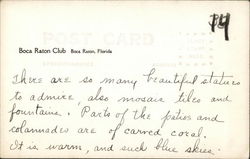 74
POST CARD
Boca Raton Club Boca Raton, Florida
There are so many beautiful statues
to admire, also mosaic tiles and
fountains. Parts of the patios and
colannades are of carved coral.
It is warm, and such blue skies.